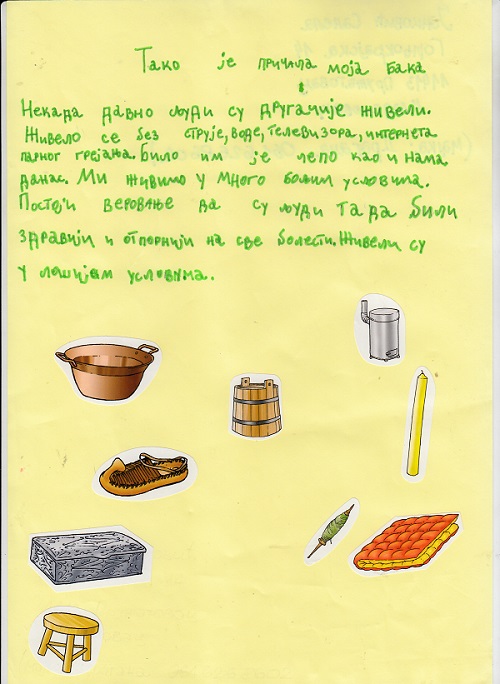 Тако је причала моја бака
Некада давно људи су другачије живели.
Живело се без струје, воде, телевизора, интернета
парног грејања. Било им је лепо као и нама
данас. Ми живимо у много бољим условима.
Постоји веровање да су људи тада били
здравији и отпорнији на све болести. Живели су
у лошијем условима.